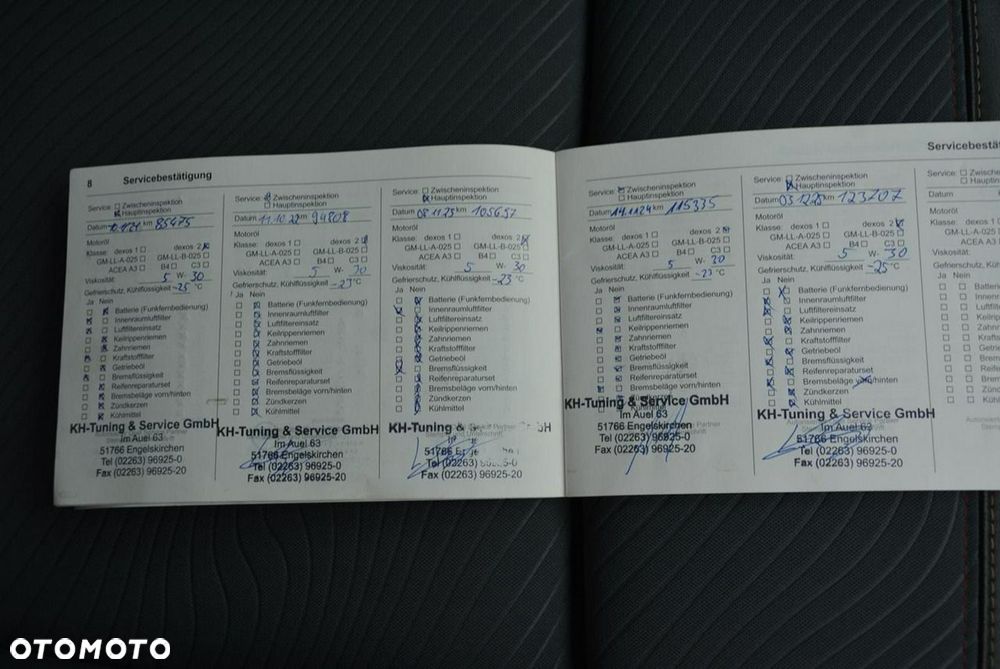 8 Servicebestätigung
Service: Zwischeninspektion
Hauptinspektion
Datum km 85475
Motoröl
Klasse: dexos 1 dexos 2
GM-LL-A-025 GM-LL-B-025
ACEA A3 B4 C3
Viskosität: 5 W- 30
Gefrierschutz, Kühlflüssigkeit -25 °C
Ja Nein
Batterie (Funkfernbedienung)
Innenraumluftfilter
Luftfiltereinsatz
Keilrippenriemen
Zahnriemen
Kraftstofffilter
Getriebeöl
Bremsflüssigkeit
Reifenreparaturset
Bremsbeläge vorn/hinten
Zündkerzen
Kühlmittel
KH-Tuning & Service GmbH
Im Auel 63
51766 Engelskirchen
Tel (02263) 96925-0
Fax (02263) 96925-20
Service: Zwischeninspektion
Hauptinspektion
Datum 11.10.22 km 94808
Motoröl
Klasse: dexos 1 dexos 2
GM-LL-A-025 GM-LL-B-025
ACEA A3 B4 C3
Viskosität: 5 W- 30
Gefrierschutz, Kühlflüssigkeit °C
Ja Nein
Batterie (Funkfernbedienung)
Innenraumluftfilter
Luftfiltereinsatz
Keilrippenriemen
Zahnriemen
Kraftstofffilter
Getriebeöl
Bremsflüssigkeit
Reifenreparaturset
Bremsbeläge vorn/hinten
Zündkerzen
Kühlmittel
KH-Tuning & Service GmbH
Im Auel 63
51766 Engelskirchen
Tel (02263) 96925-0
Fax (02263) 96925-20
Service: Zwischeninspektion
Hauptinspektion
Datum km 105657
Motoröl
Klasse: dexos 1 dexos 2
GM-LL-A-025 GM-LL-B-025
ACEA A3 B4 C3
Viskosität: 5 W- 30
Gefrierschutz, Kühlflüssigkeit -23 °C
Ja Nein
Batterie (Funkfernbedienung)
Innenraumluftfilter
Luftfiltereinsatz
Keilrippenriemen
Zahnriemen
Kraftstofffilter
Getriebeöl
Bremsflüssigkeit
Reifenreparaturset
Bremsbeläge vorn/hinten
Zündkerzen
Kühlmittel
51766
Tel (02263) 96925-0
Fax (02263) 96925-20
Service: Zwischeninspektion
Hauptinspektion
Datum 14.11.24 km 115335
Motoröl
Klasse: dexos 1 dexos 2
GM-LL-A-025 GM-LL-B-025
ACEA A3 B4 C3
Viskosität: 5 W- 30
Gefrierschutz, Kühlflüssigkeit -23 °C
Ja Nein
Batterie (Funkfernbedienung)
Innenraumluftfilter
Luftfiltereinsatz
Keilrippenriemen
Zahnriemen
Kraftstofffilter
Getriebeöl
Bremsflüssigkeit
Reifenreparaturset
Bremsbeläge vorn/hinten
Zündkerzen
KH-Tuning & Service GmbH
Im Auel 63
51766 Engelskirchen
Tel (02263) 96925-0
Fax (02263) 96925-20
Servicebestä
Service: Zwischeninspektion
Hauptinspektion
Datum km 123707
Motoröl
Klasse: dexos 1 dexos 2
GM-LL-A-025 GM-LL-B-025
ACEA A3 B4 C3
Viskosität: 5 W- 30
Gefrierschutz, Kühlflüssigkeit -25 °C
Ja Nein
Batterie (Funkfernbedienung)
Innenraumluftfilter
Luftfiltereinsatz
Keilrippenriemen
Zahnriemen
Kraftstofffilter
Getriebeöl
Bremsflüssigkeit
Reifenreparaturset
Bremsbeläge vorn/hinten
Zündkerzen
Kühlmittel
KH-Tuning & Service GmbH
Im Auel 63
51766 Engelskirchen
Tel (02263) 96925-0
Fax (02263) 96925-20
Service:
Datum
Motoröl
Klasse:
Viskosität:
Ja Nein
OTOMOTO